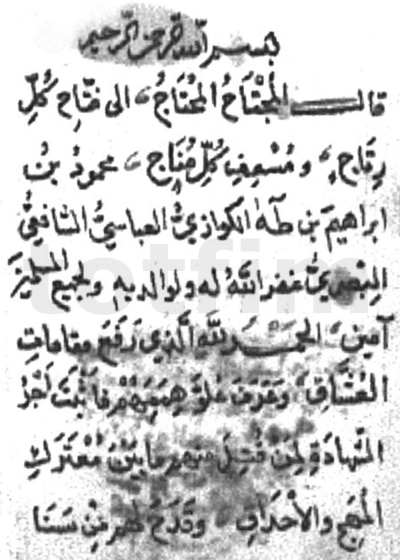 بسم الله الرحمن الرحيم
قال المجتاح المحتاج، الى فتاح كُلِّ
رِتَاج، ومُسْعِفِ كُلِّ مُحتَاج، محمودُ بنُ
ابراهيمَ بن طٰهٰ الكوازيُّ العباسيُّ الشافعيُّ
البَصْرِيُّ غفر اللهُ له ولوالديهِ ولجميع المسلمين
آمين، الحَمْدُ للهِ الَّذِي رَفَعَ مقاماتِ
العُشَّاقِ، وَعَرَفَ عُلُوَّ هِمَمِهِمْ فَأَثبَتَ أَجْرَ
الشَّهادَةِ لِمَن قُتِلَ منهم ما بَيْنَ مُعْتَرَكِ
المُهَجِ والأحْدَاقِ وقَدَحَ لهم مِنْ سَنَا